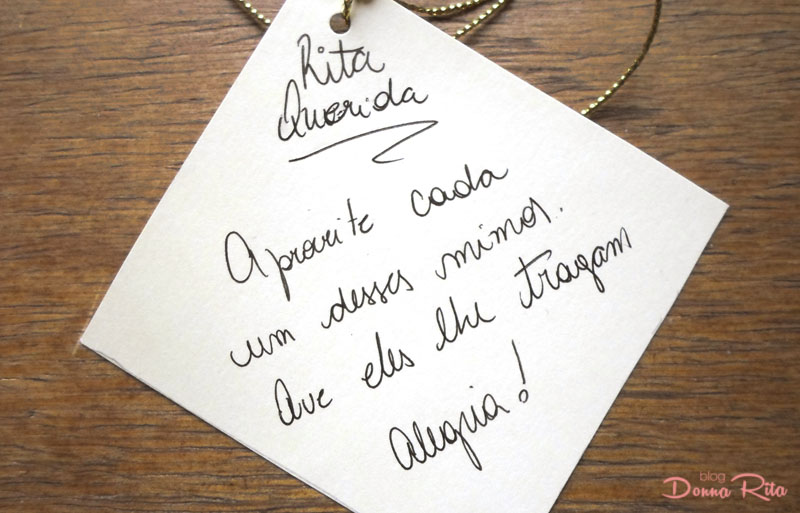 Rita
Querida
Aproveite cada
um desses mimos.
Que eles lhe tragam
alegria!
blog
Donna Rita